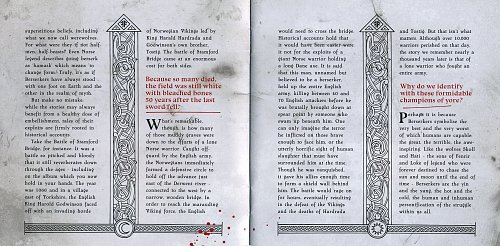 superstitious beliefs, including
what we now call werewolves.
For what were they if not half-
men, half-beasts? Even Norse
legend describes going berserk
as hamask which means 'to
change form'! Truly, it's as if
Berserkers have always stood
with one foot on Earth and the
other in the realm of myth.
But make no mistake:
while the stories may always
benefit from a healthy dose of
embellishment, tales of their
exploits are firmly rooted in
historical accounts.
Take the Battle of Stamford
Bridge, for instance: it was a
battle so pitched and bloody
that it still reverberates down
through the ages - including
on the album which you now
hold in your hands. The year
was 1066 and in a village
east of Yorkshire, the English
King Harold Godwinson faced
off with an invading horde
of Norwegian Vikings led by
King Harald Hardrada and
Godwinson's own brother,
Tostig. The battle of Stamford
Bridge came at an enormous
cost for both sides.
Because so many died,
the field was still white
with bleached bones
50 years after the last
sword fell!
What's remarkable,
though, is how many
of those muddy graves were
down to the efforts of a lone
Norse warrior. Caught off-
guard by the English army,
the Norwegians immediately
formed a defensive circle to
hold off the advance just
east of the Derwent river -
connected to the west by a
narrow, wooden bridge. In
order to reach the marauding
Viking force, the English
would need to cross the bridge.
Historical accounts hold that
it would have been easier were
it not for the exploits of a
giant Norse warrior holding
a long Dane axe. It is said
that this man, unnamed but
believed to be a berserker,
held up the entire English
army, killing between 40 and
70 English attackers before he
was brutally brought down at
spear point by someone who
swam up beneath him. One
can only imagine the terror
he inflicted on those brave
enough to face him, or the
utterly horrific sight of human
slaughter that must have
surrounded him at the time.
Though he was vanquished,
it gave his allies enough time
to form a shield wall behind
him. The battle would rage on
for hours, eventually resulting
in the defeat of the Vikings
and the deaths of Hardrada
and Tostig. But that isn't what
matters. Although over 10.000
warriors perished on that day,
the story we remember nearly a
thousand years later is that of
a lone warrior who fought an
entire army.
Why do we identify
with these formidable
champions of yore?
Perhaps it is because
Berserkers symbolise the
very best and the very worst
of which humans are capable:
the great, the terrible, the awe-
inspiring. Like the wolves Skoll
and Hati - the sons of Fenrir
and Loke of legend who were
forever destined to chase the
sun and moon until the end of
time - Berserkers are the yin
and the yang, the hot and the
cold, the human and inhuman
personification of the struggle
within us all.